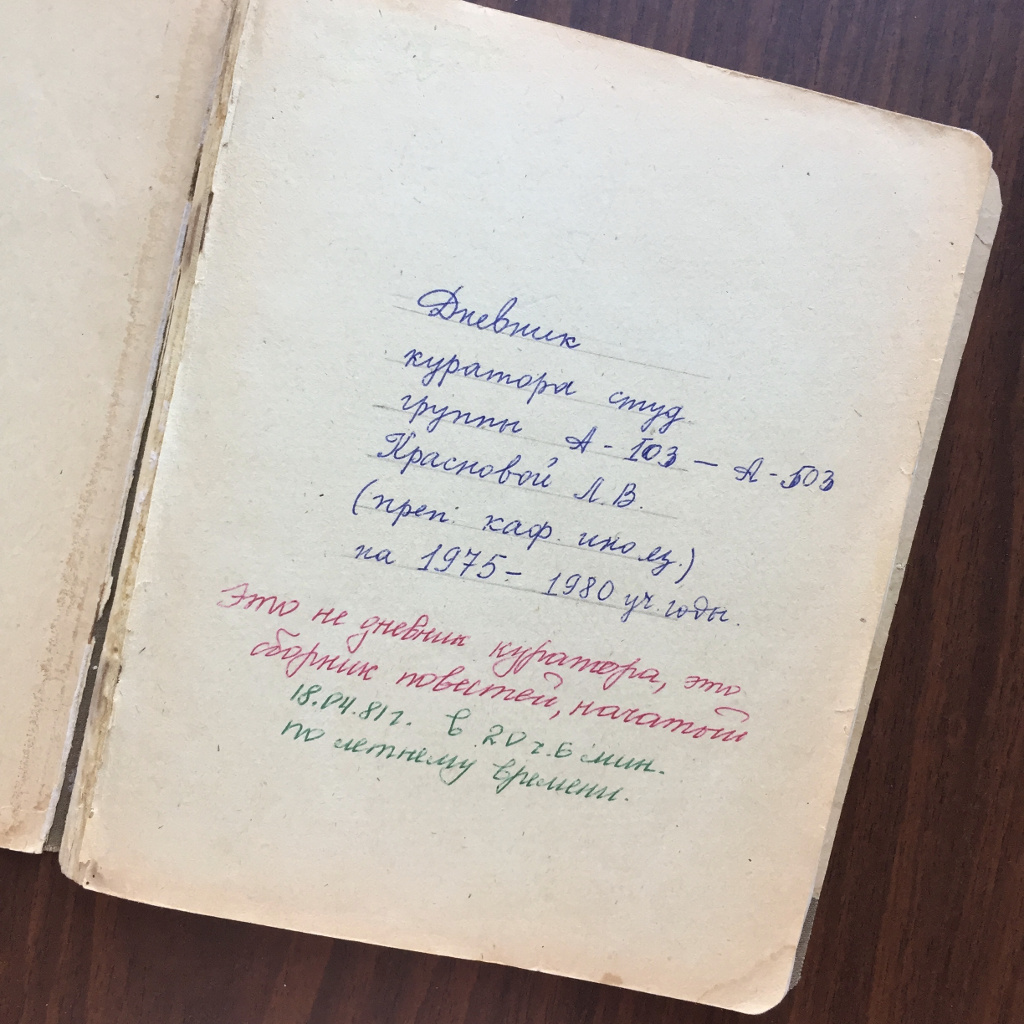 Дневник
куратора студ
группы А-103 — А-503
Красновой Л.В.
(преп. каф. ино яз.)
на 1975 - 1980 уч. годы.
Это не дневник куратора, это
сборник повестей, начатый
18.04.81г. в 20 ч. 6 мин.
по летнему времени.